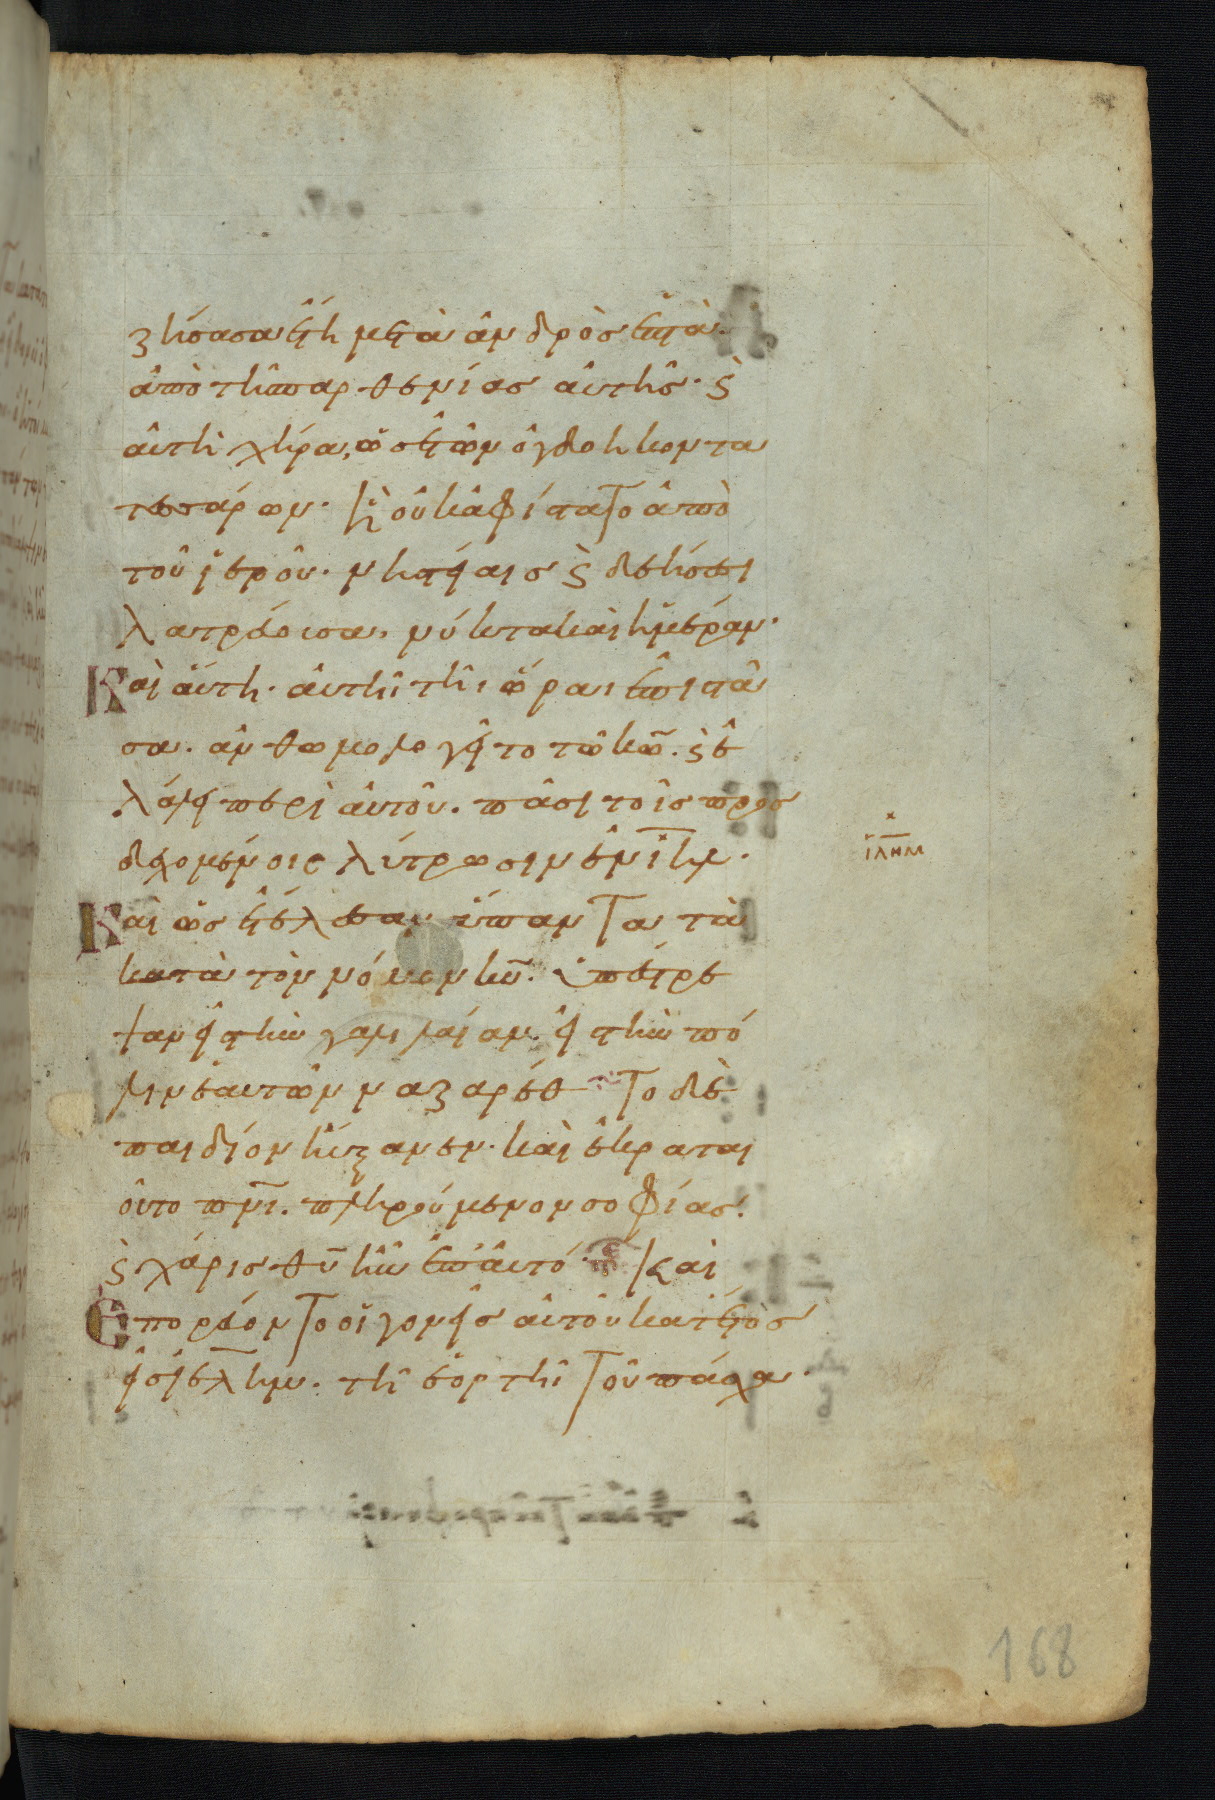 ζήσασα ἔτη μετὰ ἀνδρὸς ἑπτὰ
ἀπὸ τῆ παρθενίας αὐτῆς· ϗ
αὐτὴ χήρα, ὡς ἐτῶν ὀγδοήκοντα
τεσσάρων· ϗ οὐκ ἀφίστατο ἀπὸ
τοῦ ἱεροῦ· νηστείαις ϗ δεήσεσι
λατρεύουσα, νύκτα καὶ ἡμέραν·
Καὶ αὕτη· αὐτῆ τῆι ὥραι ἐπιστᾶ
σα· ἀνθωμολογεῖτο τῶ κω̅· ϗ ἐ
λάλει περὶ αὐτοῦ· πᾶσι τοῖς προσ
δεχομένοις λύτρωσιν ἐν ϊλημ·
ϊλημ
Καὶ ὡς ἐτέλεσαν ἅπαντα τὰ
κατὰ τὸν νόμον κυ̅· ὑπέστρε
ψαν εἰς τὴν γαλιλαίαν· εἰς τὴν πό
λιν ἑαυτῶν ναζαρέθ Το δὲ
παιδίον ηὔξανεν· καὶ ἐκραται
οῦτο πν̅ι· πληρούμενον σοφίας·
ϗ χάρις θυ̅ ἦν ἐπ' αὐτό· Καὶ
Ἐπορεύοντο οἱ γονεῖς αὐτοῦ κατ' ἔτος
εἰς ϊε̅λημ· τῆ ἑορτῆ τοῦ πάσχα·
168